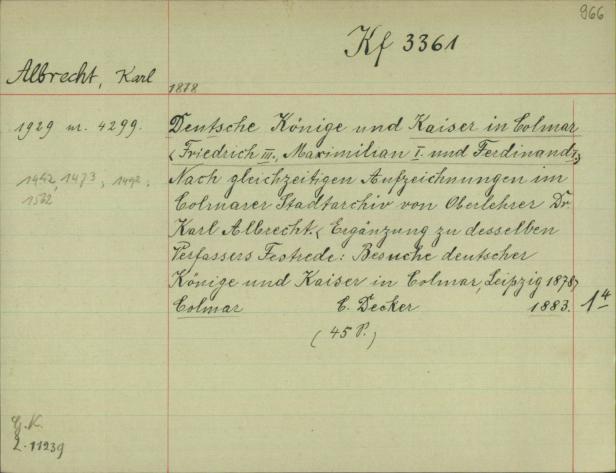 966
Kf 3361
Albrecht, Karl
1878
1929 nr. 4299.
Deutsche Könige und Kaiser in Colmar
<Friedrich III., Maximilian I und Ferdinand I.>
1442, 1473, 1492,
1562
Nach gleichzeitigen Aufzeichnungen im
Colmarer Stadtarchiv von Oberlehrer Dr
Karl Albrecht. <Ergänzung zu desselben
Verfassers Festrede: Besuche deutscher
Könige und Kaiser in Colmar, Leipzig 1878>
Colmar C. Decker 1883. 1 4
(45 P.)
G.K.
2.11239